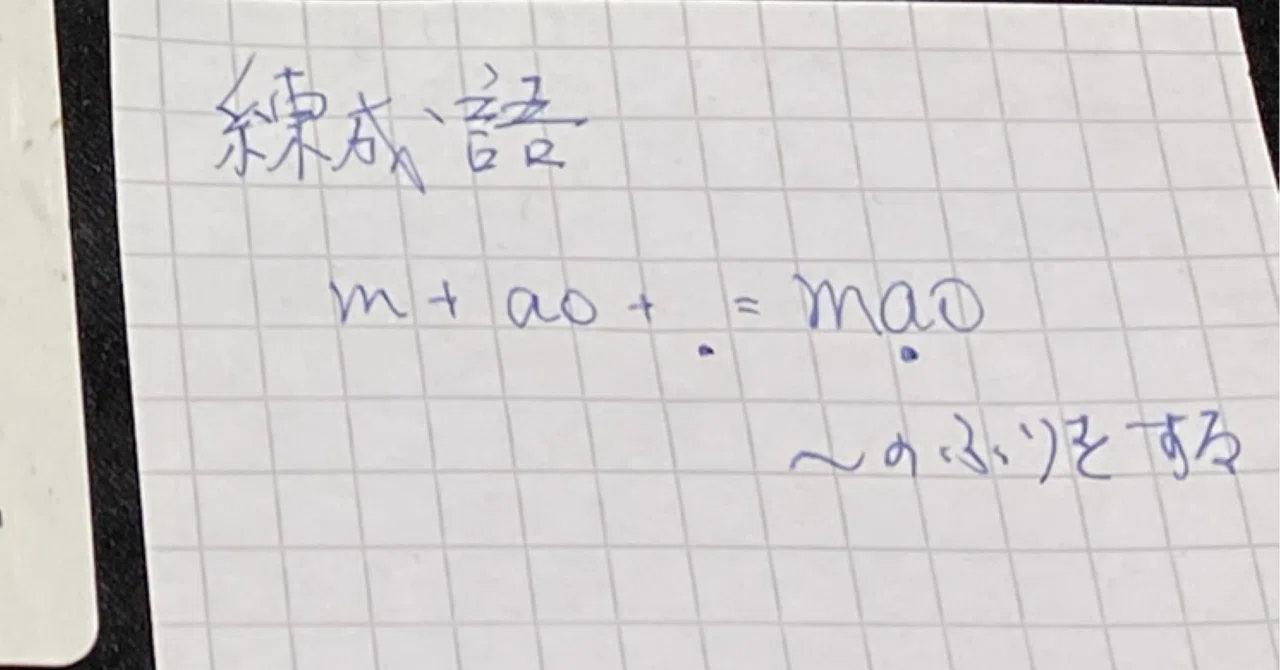 練成語
m + ao + . = mạo
〜のふりをする